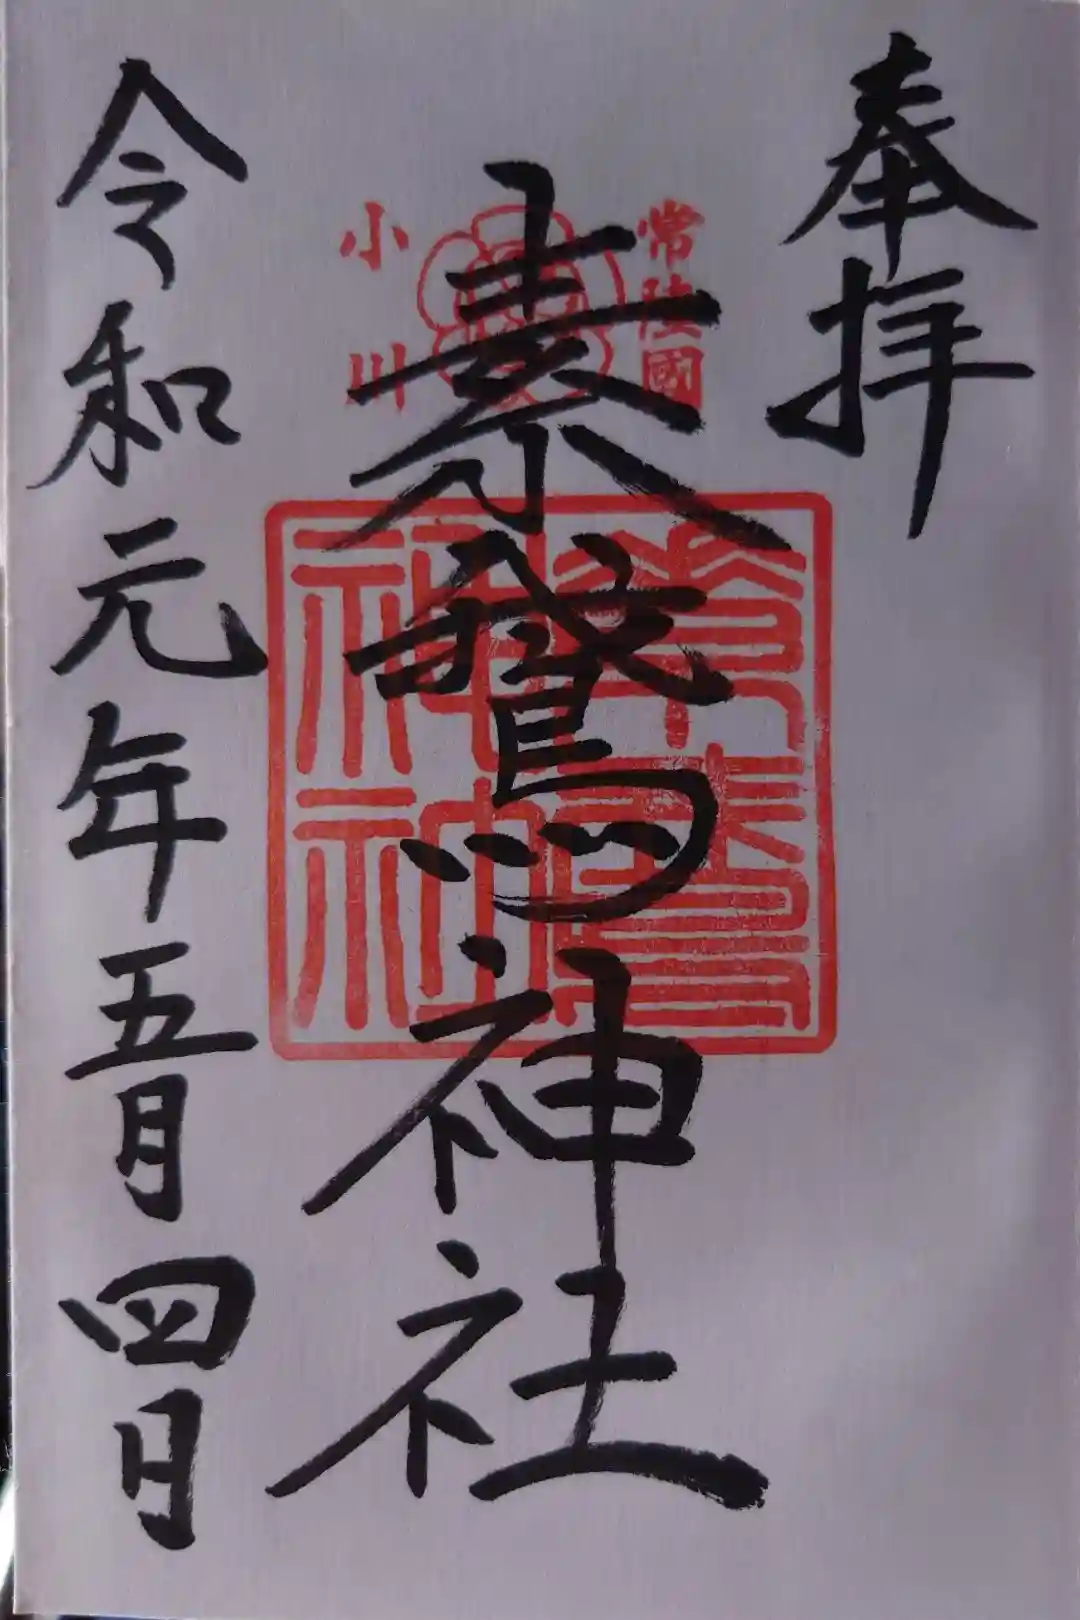 奉拝
常陸國
素鵞神社
小川
素鵞
神社
令和元年五月四日